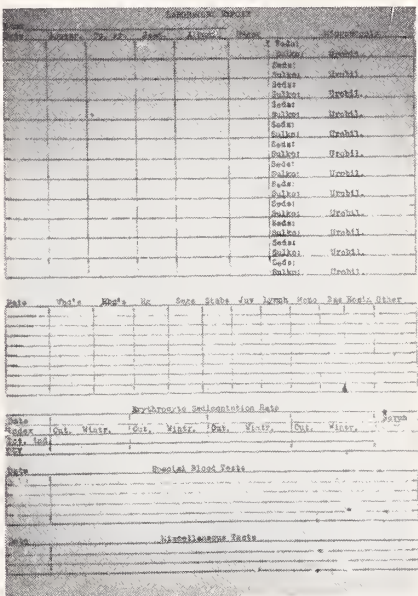 LABORATORY REPORT
Name
Date Appear. Sp. Gr. Reac. Album. Sugar Microscopic
Seds:
Sulko: Urobil.
Seds:
Sulko: Urobil.
Seds:
Sulko: Urobil.
Seds:
Sulko: Urobil.
Seds:
Sulko: Urobil.
Seds:
Sulko: Urobil.
Seds:
Sulko: Urobil.
Seds:
Sulko: Urobil.
Seds:
Sulko: Urobil.
Seds:
Sulko: Urobil.
Seds:
Sulko: Urobil.
Seds:
Sulko: Urobil.
Date Wbc's Rbc's Segs Stabs Juv Lymph Mono Bas Eosin Other
Erythrocyte Sedimentation Rate
Date
Index Cut. Wintr. Cut. Wintr. Cut. Wintr. Cut. Wintr.
Date Special Blood Tests
Date Miscellaneous Tests